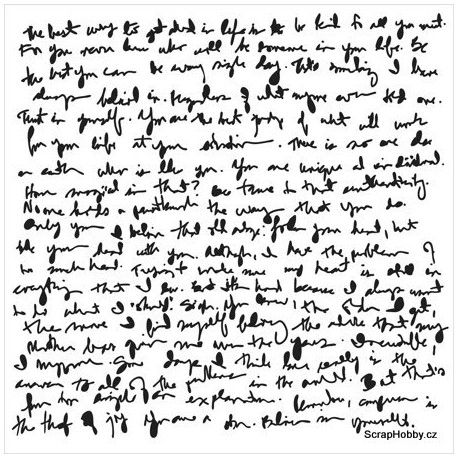 The best way to get ahead in life is to be kind to all you meet.
For you never know who will be someone in your life. Be
the best you can be every single day. It's something I have
always believed in. Regardless of what anyone ever told me.
Trust in yourself. You are the best judge of what will work
for you life at your situation. There is no one else
on earth who is like you. You are unique and individual.
How magical is that? Be true to that authenticity.
No one holds a paintbrush the way that you do.
Only you. I believe that old adage: follow your heart, but
take your head with you. Although, I have the problem of
too much heart. Trying to make sure my heart is also in
everything that I do. But it's hard because I always want
to do what I "should". Sigh. You know, the older I get,
the more I find myself following the advice that my
Mother has given me over the years. Incredible,
I suppose. Some days I think love really is the
answer to all of the problems in the world. But that's
for too simple of an explanation. Remember, comparison is
the thief of joy. You are a star. Believe in yourself.
ScrapHobby.cz